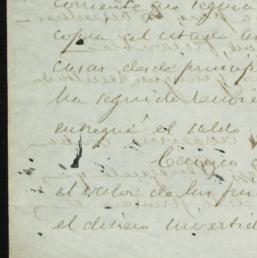 corriente que seguia
copia del citado
casas desde princip
ha seguido recibie
entregué el saldo
el valor de las fin
el dinero invertid